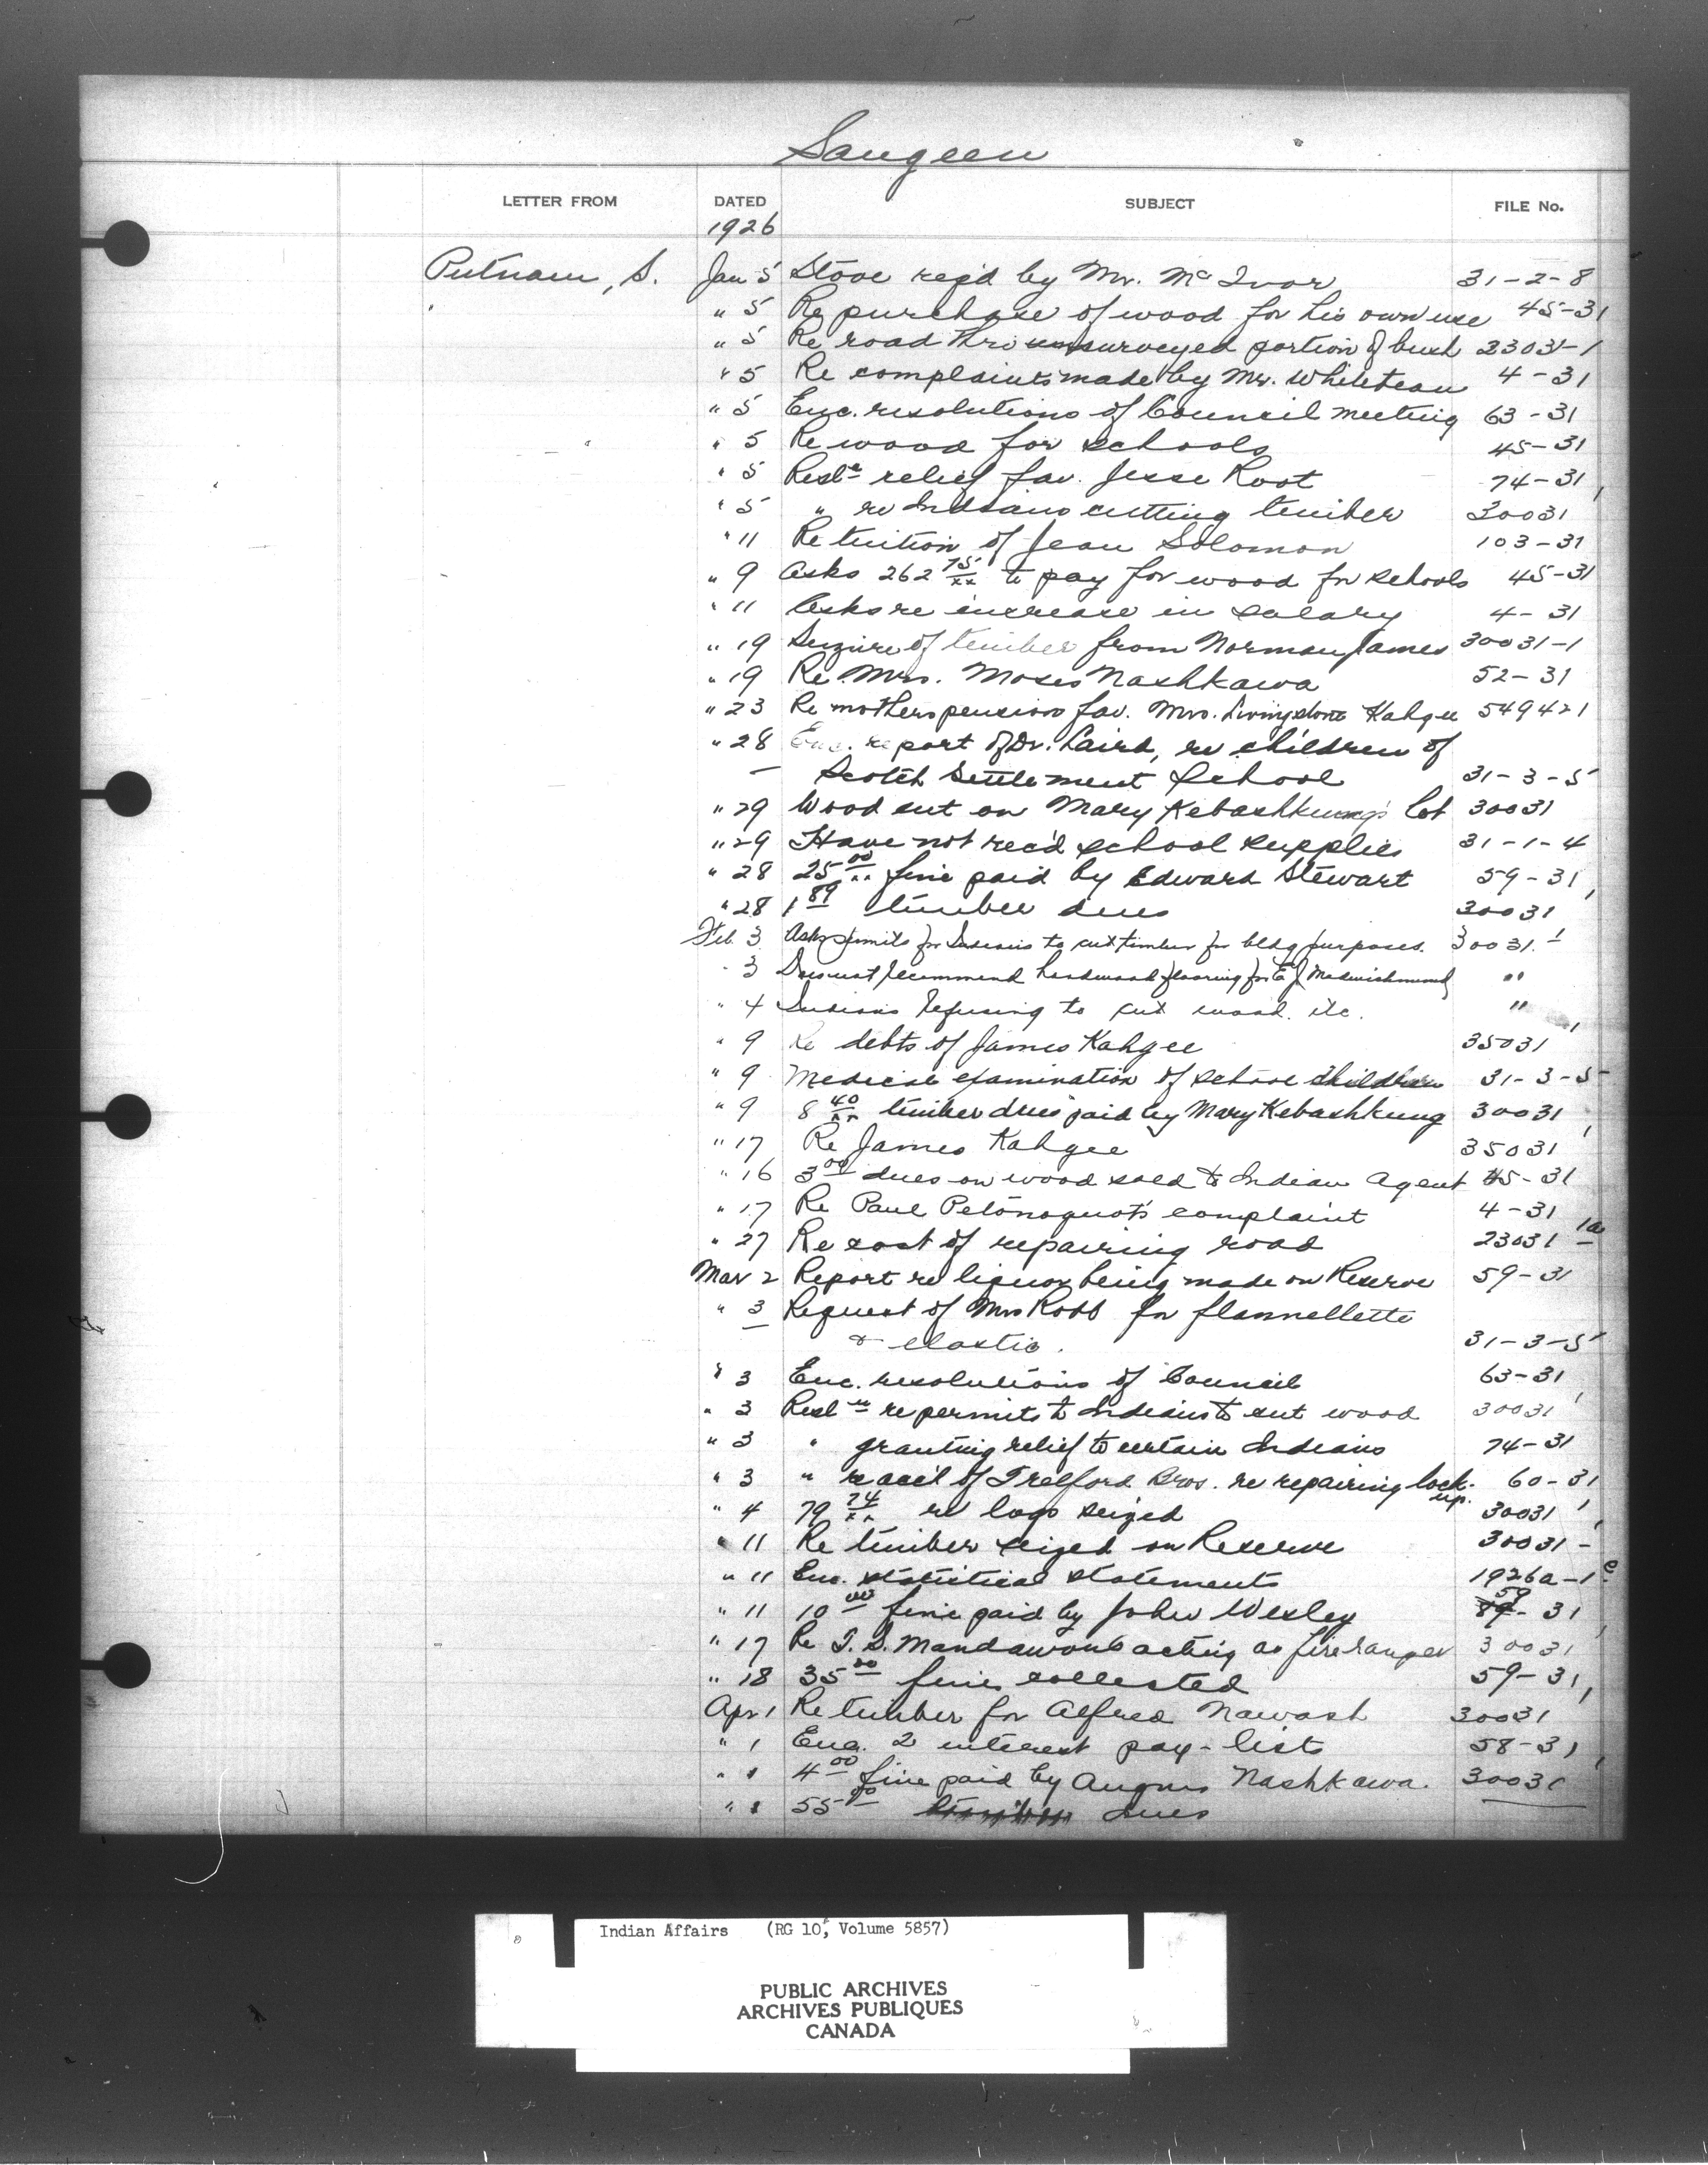 Saugeen
LETTER FROM DATED SUBJECT FILE No.
1926
Putnam, S. Jan 5 Stove req'd by Mr. McIvor 31-2-8
" 5 Re purchase of wood for his own use 45-31
" 5 Re road thro unsurveyed portion of bush 23031-1
" 5 Re complaints made by Mr. Whitetean 4-31
" 5 Enc. resolutions of Council meeting 63-31
" 5 Re wood for schools 45-31
" 5 Resln relief fav. Jesse Root 74-31
" 5 " re Indians cutting timber 30031
" 11 Re tuition of Jean Solomon 103-31
" 9 Asks 262 75/xx to pay for wood for schools 45-31
" 11 Asks re increase in salary 4-31
" 19 Seizure of timber from Norman James 30031-1
" 19 Re Mrs. Moses Nashkawa 52-31
" 23 Re mothers pension fav. Mrs. Livingstone Kahgee 549421
" 28 Enc. report of Dr. Laird, re children of
Scotch Settlement School 31-3-5
" 29 Wood cut on Mary Kebashkung's lot 30031
" 29 Have not rec'd school supplies 31-1-4
" 28 25 00/xx fine paid by Edward Stewart 59-31
" 28 1 89 timber dues 30031
Feb. 3 Asks permits for Indians to cut timber for bldg purposes. 30031-1
" 3 Does not recommend hardwood flooring for "
" 4 Indians refusing to cut wood. etc. "
" 9 Re debts of James Kahgee 35031
" 9 Medical examination of school children 31-3-5
" 9 8 40/xx timber dues paid by Mary Kebashkung 30031
" 17 Re James Kahgee 35031
" 16 3 00 dues on wood sold to Indian Agent 45-31
" 17 Re Paul Petonoquot's complaint 4-31
" 27 Re cost of repairing road 23031 1a
Mar 2 Report re liquor being made on Reserve 59-31
" 3 Request of Mrs Robb for flannellette
& elastic. 31-3-5
" 3 Enc. resolutions of Council 63-31
" 3 Resln re permits to Indians to cut wood 30031
" 3 " granting relief to certain Indians 74-31
" 3 " re acc't of Trelford Bros. re repairing lock-up. 60-31
" 4 79 74/xx re logs seized 30031
" 11 Re timber seized on Reserve 30031-
" 11 Enc. statistical statements 1926a-1
" 11 10 00 fine paid by John Wesley 59-31
" 17 Re T. S. Mandawoub acting as fire ranger 30031
" 18 35 00 fines collected 59-31
Apr 1 Re timber for Alfred Nawash 30031
" 1 Enc. 2 interest pay-lists 58-31
" 1 4 00 fine paid by Angus Nashkawa. 30031
" 1 55 00 dues
Indian Affairs (RG 10, Volume 5857)
PUBLIC ARCHIVES
ARCHIVES PUBLIQUES
CANADA